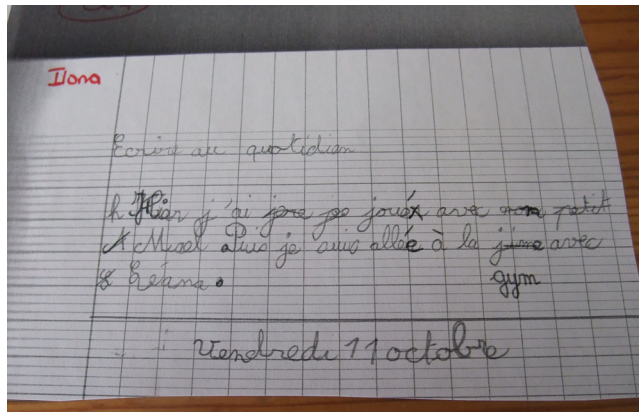 Ilona
Ecrire au quotidian
h Hier j'ai joué avec petit
Misol Puis je suis allée à la jime avec
Leana.
gym
Vendredi 11 octobre